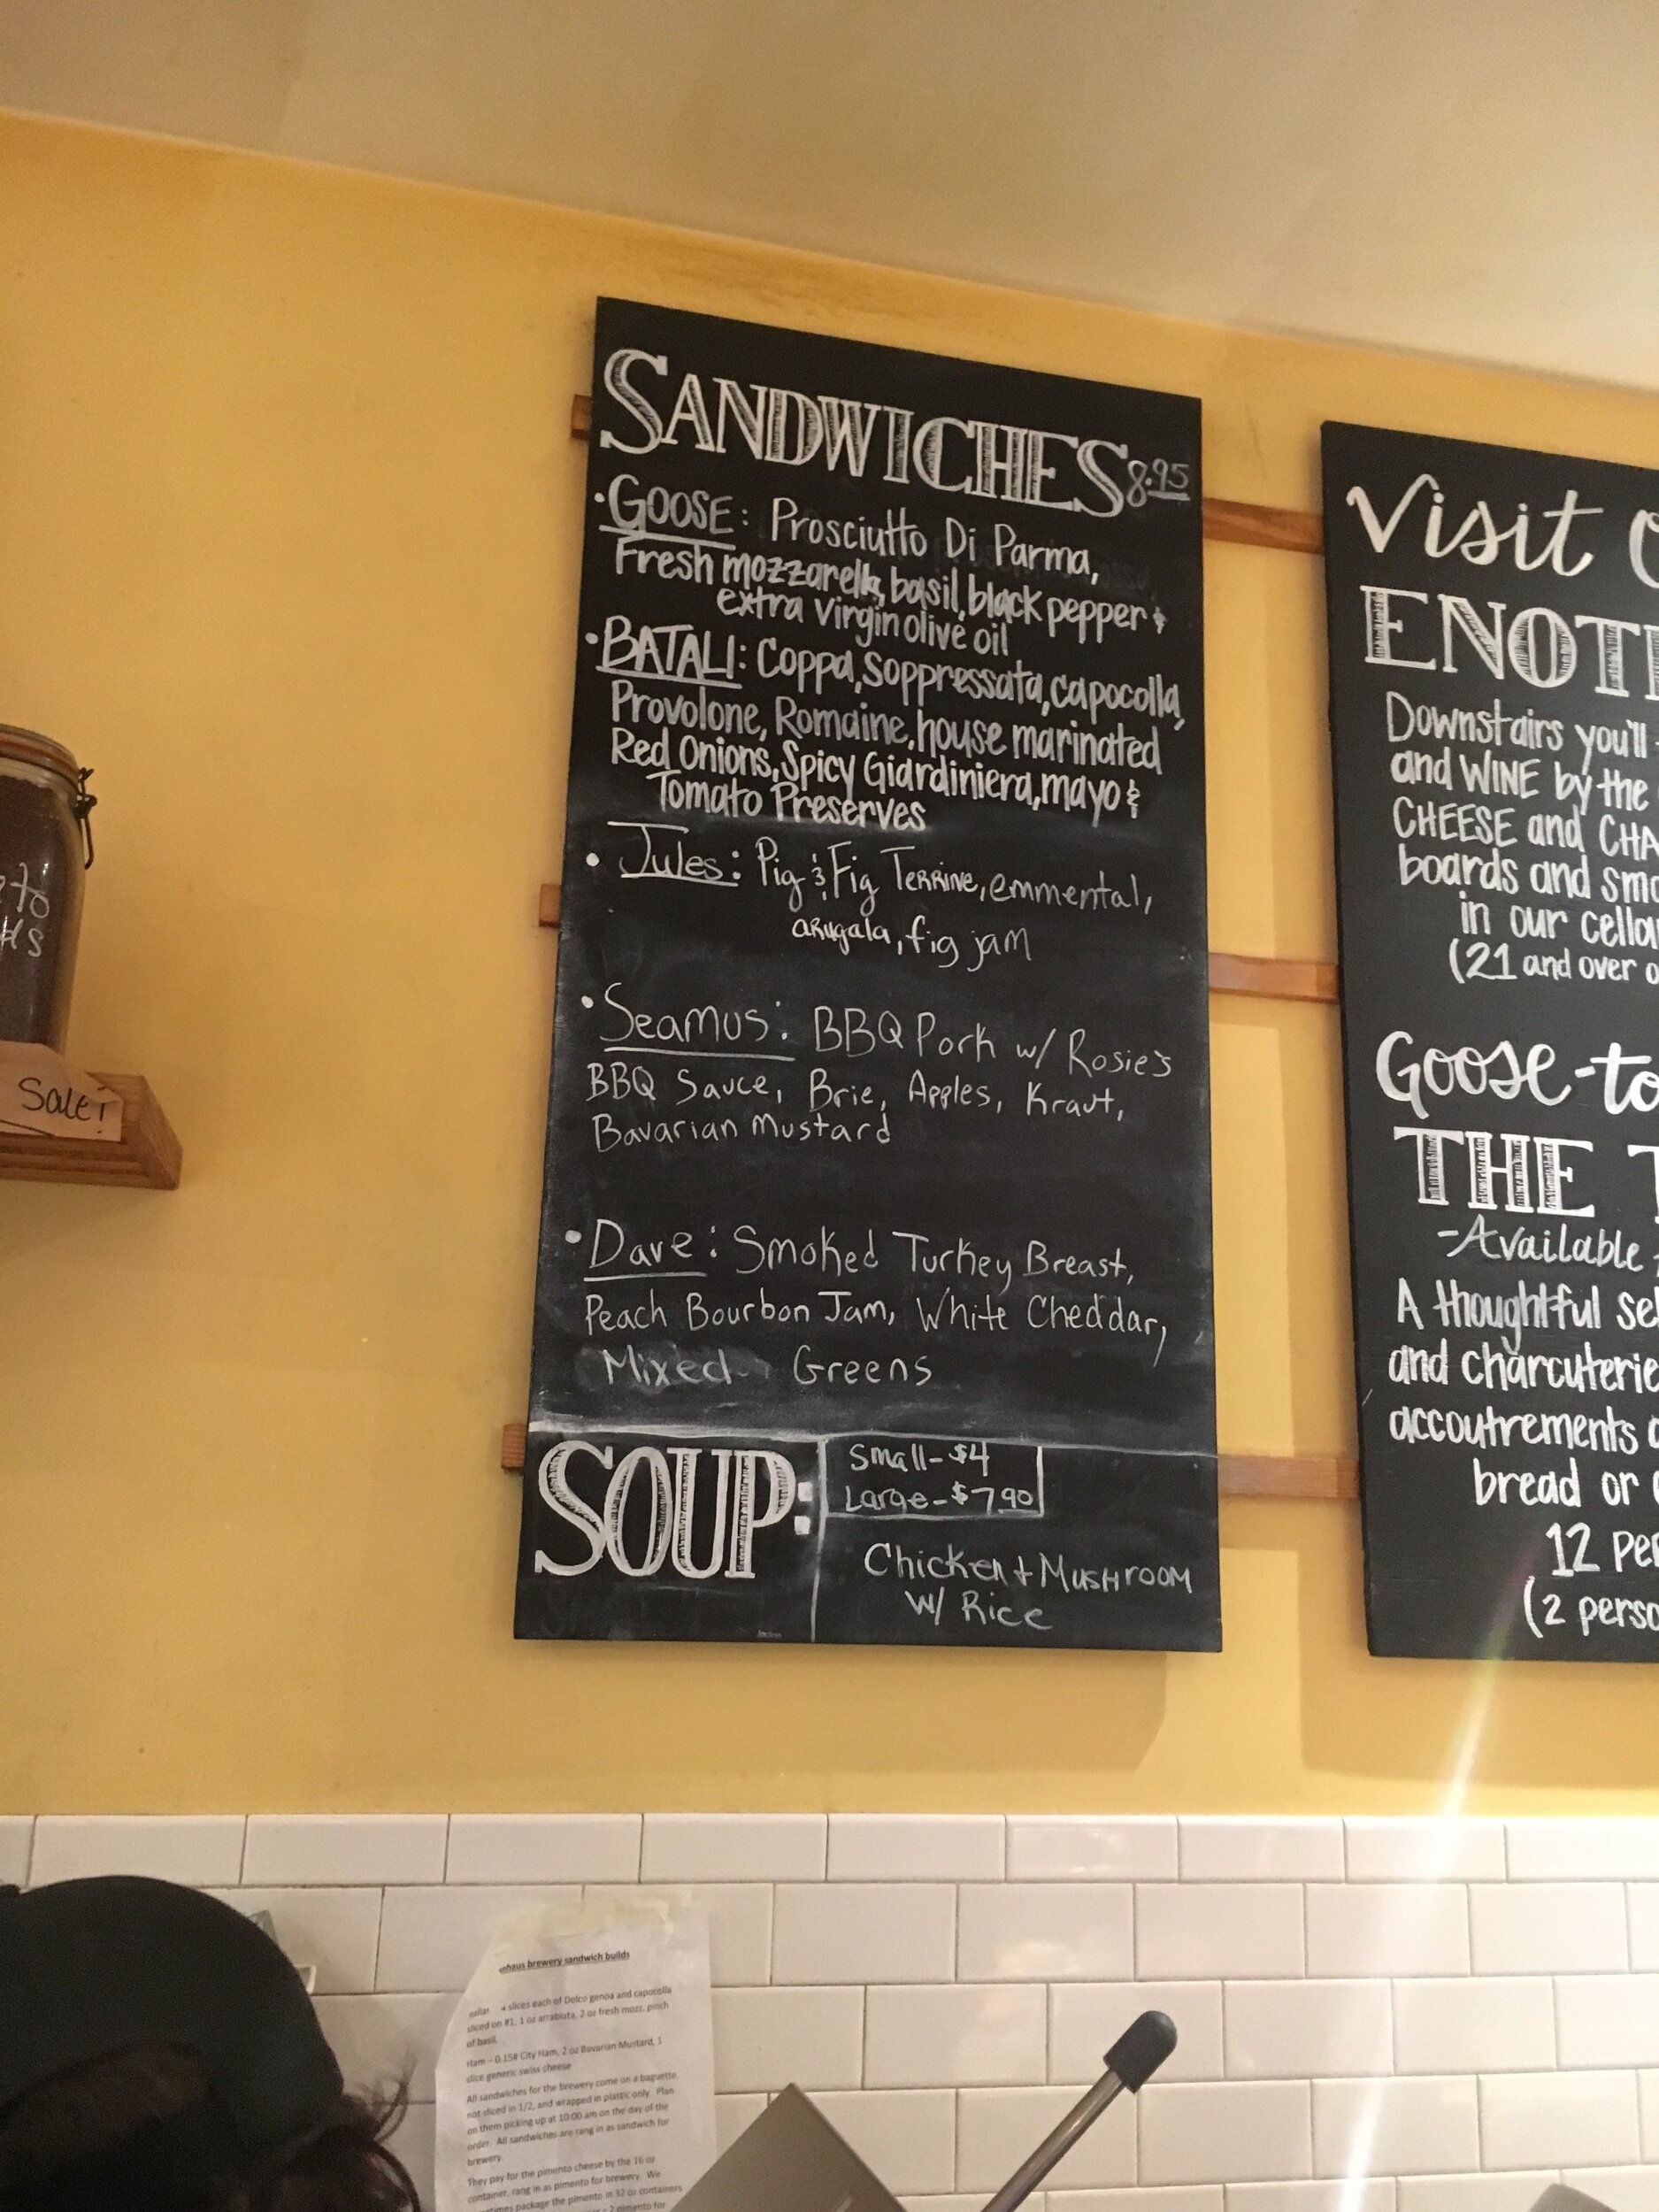 SANDWICHES 8.95
• GOOSE: Prosciutto Di Parma,
Fresh mozzarella, basil, black pepper &
extra virgin olive oil
• BATALI: Coppa, Soppressata, capocolla,
Provolone, Romaine, house marinated
Red Onions, Spicy Giardiniera, mayo &
Tomato Preserves
• Jules: Pig & Fig Terrine, emmental,
arugala, fig jam
• Seamus: BBQ Pork w/ Rosie's
BBQ Sauce, Brie, Apples, Kraut,
Bavarian Mustard
• Dave: Smoked Turkey Breast,
Peach Bourbon Jam, White Cheddar,
Mixed Greens
SOUP:
Small - $4
Large - $7.90
Chicken + Mushroom
w/ Rice
Visit
Downstairs you'll
and WINE by the
CHEESE and
boards and
in our
(21 and over
Goose-to
THE
- Available
A thoughtful
and charcuterie
accoutrements
bread or
12
(2
Sale!
brewery sandwich builds
4 slices each of Delco genoa and capocolla
sliced on #1, 1 oz arrabiata, 2 oz fresh mozz, pinch
of basil.
Ham – 0.15# City Ham, 2 oz Bavarian Mustard, 1
slice generic swiss cheese
All sandwiches for the brewery come on a baguette,
not sliced in 1/2, and wrapped in plastic only. Plan
on them picking up at 10:00 am on the day of the
order. All sandwiches are rang in as sandwich for
brewery
They pay for the pimento cheese by the 16 oz
container, rang in as pimento for brewery. We
package the pimento in 32 oz containers
= 2 pimento for